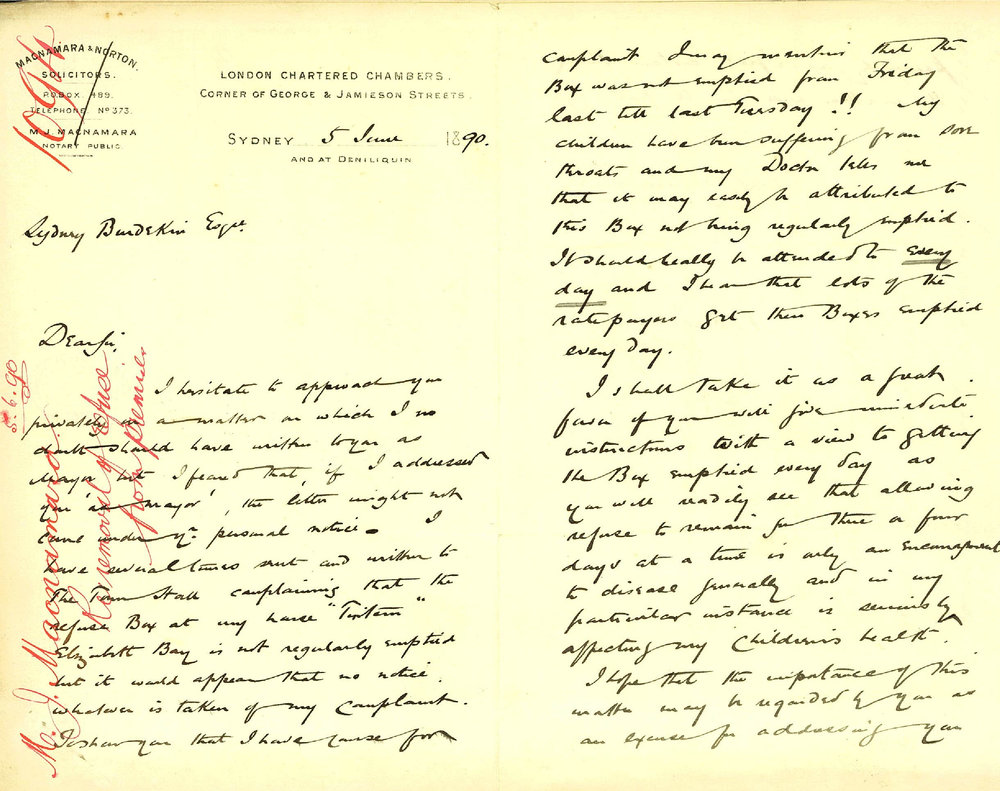 MACNAMARA & NORTON.
SOLICITORS.
P.O. BOX 489.
TELEPHONE No 373.
M. J. MACNAMARA
NOTARY PUBLIC.
1094
LONDON CHARTERED CHAMBERS.
CORNER OF GEORGE & JAMIESON STREETS.
SYDNEY 5 June 1890.
AND AT DENILIQUIN
Sydney Burdekin Esqre
Dear Sir,
I hesitate to approach you
privately on a matter on which I no
doubt should have written to you as
Mayor but I feared that, if I addressed
you "as mayor", the letter might not
come under yr personal notice. I
have several times sent and written to
The Town Hall complaining that the
refuse Box at my house
Elizabeth Bay is not regularly emptied
but it would appear that no notice
whatever is taken of my complaint.
To show you that I have cause for
M. J. Macnamara
5.6.90
Removal of
for premises
complaint I may mention that the
Box was not emptied from Friday
last till last Tuesday!! My
children have been suffering from sore
throats and my Doctor tells me
that it may easily be attributed to
this Box not being regularly emptied.
It should really be attended to every
day and I hear that lots of the
ratepayers get their Boxes emptied
every day.
I shall take it as a great
favor if you will give immediate
instructions with a view to getting
the Box emptied every day as
you will readily see that allowing
refuse to remain for three or four
days at a time is only an encouragement
to disease generally and in my
particular instance is seriously
affecting my children's health.
I hope that the importance of this
matter may be regarded by you as
an excuse for addressing you